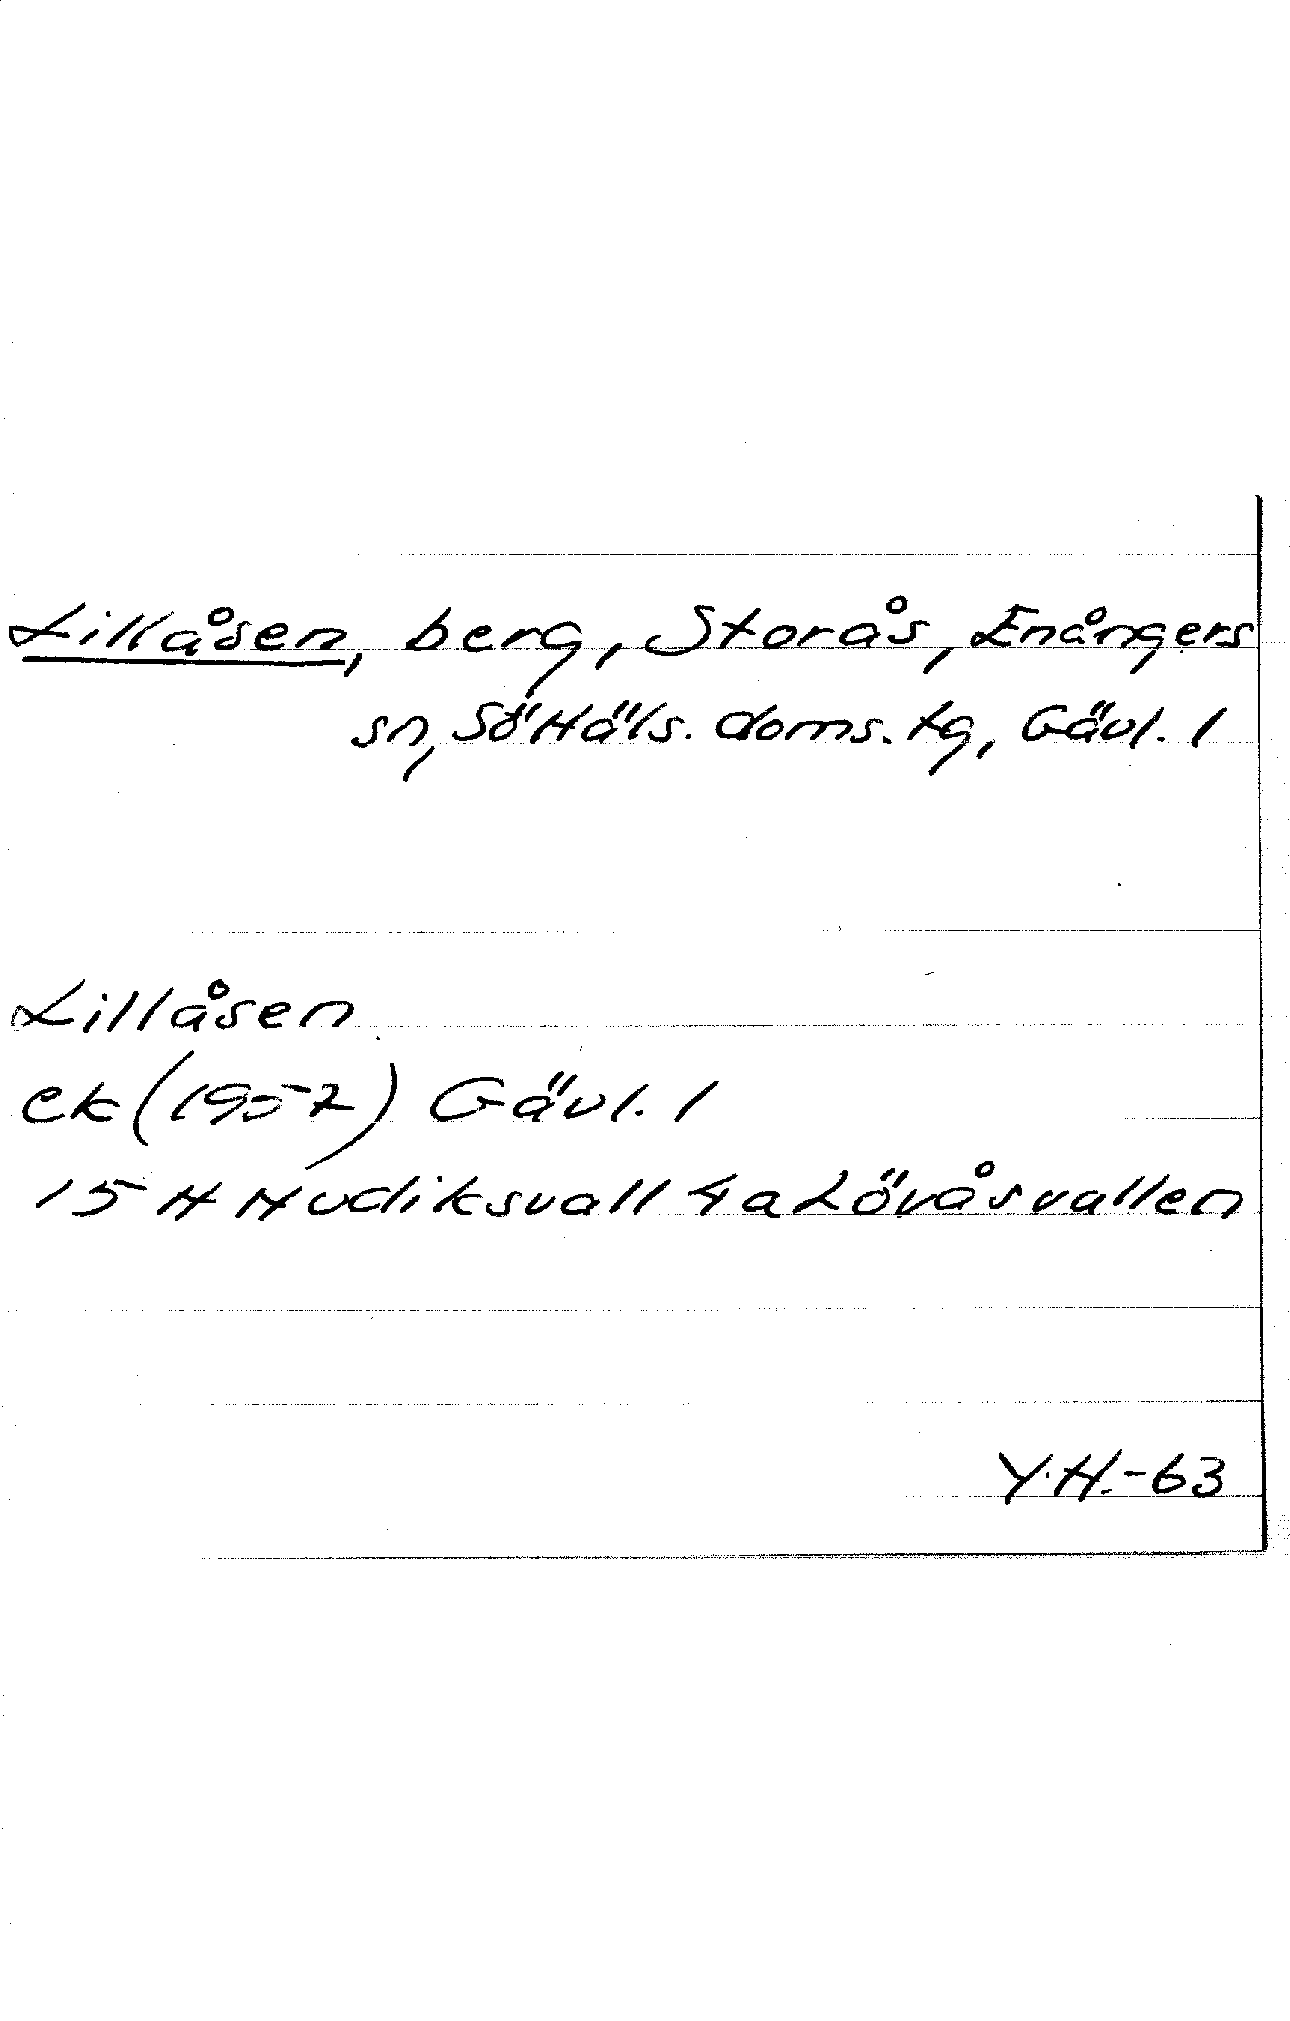 Lillåsen, berg, Storås, Enångers
sn, Sö Häls. doms. tg, Gävl. l
Lillåsen
ek (1957) Gävl. l
15 H Hudiksvall 4 a Lövåsvallen
Y.H.-63